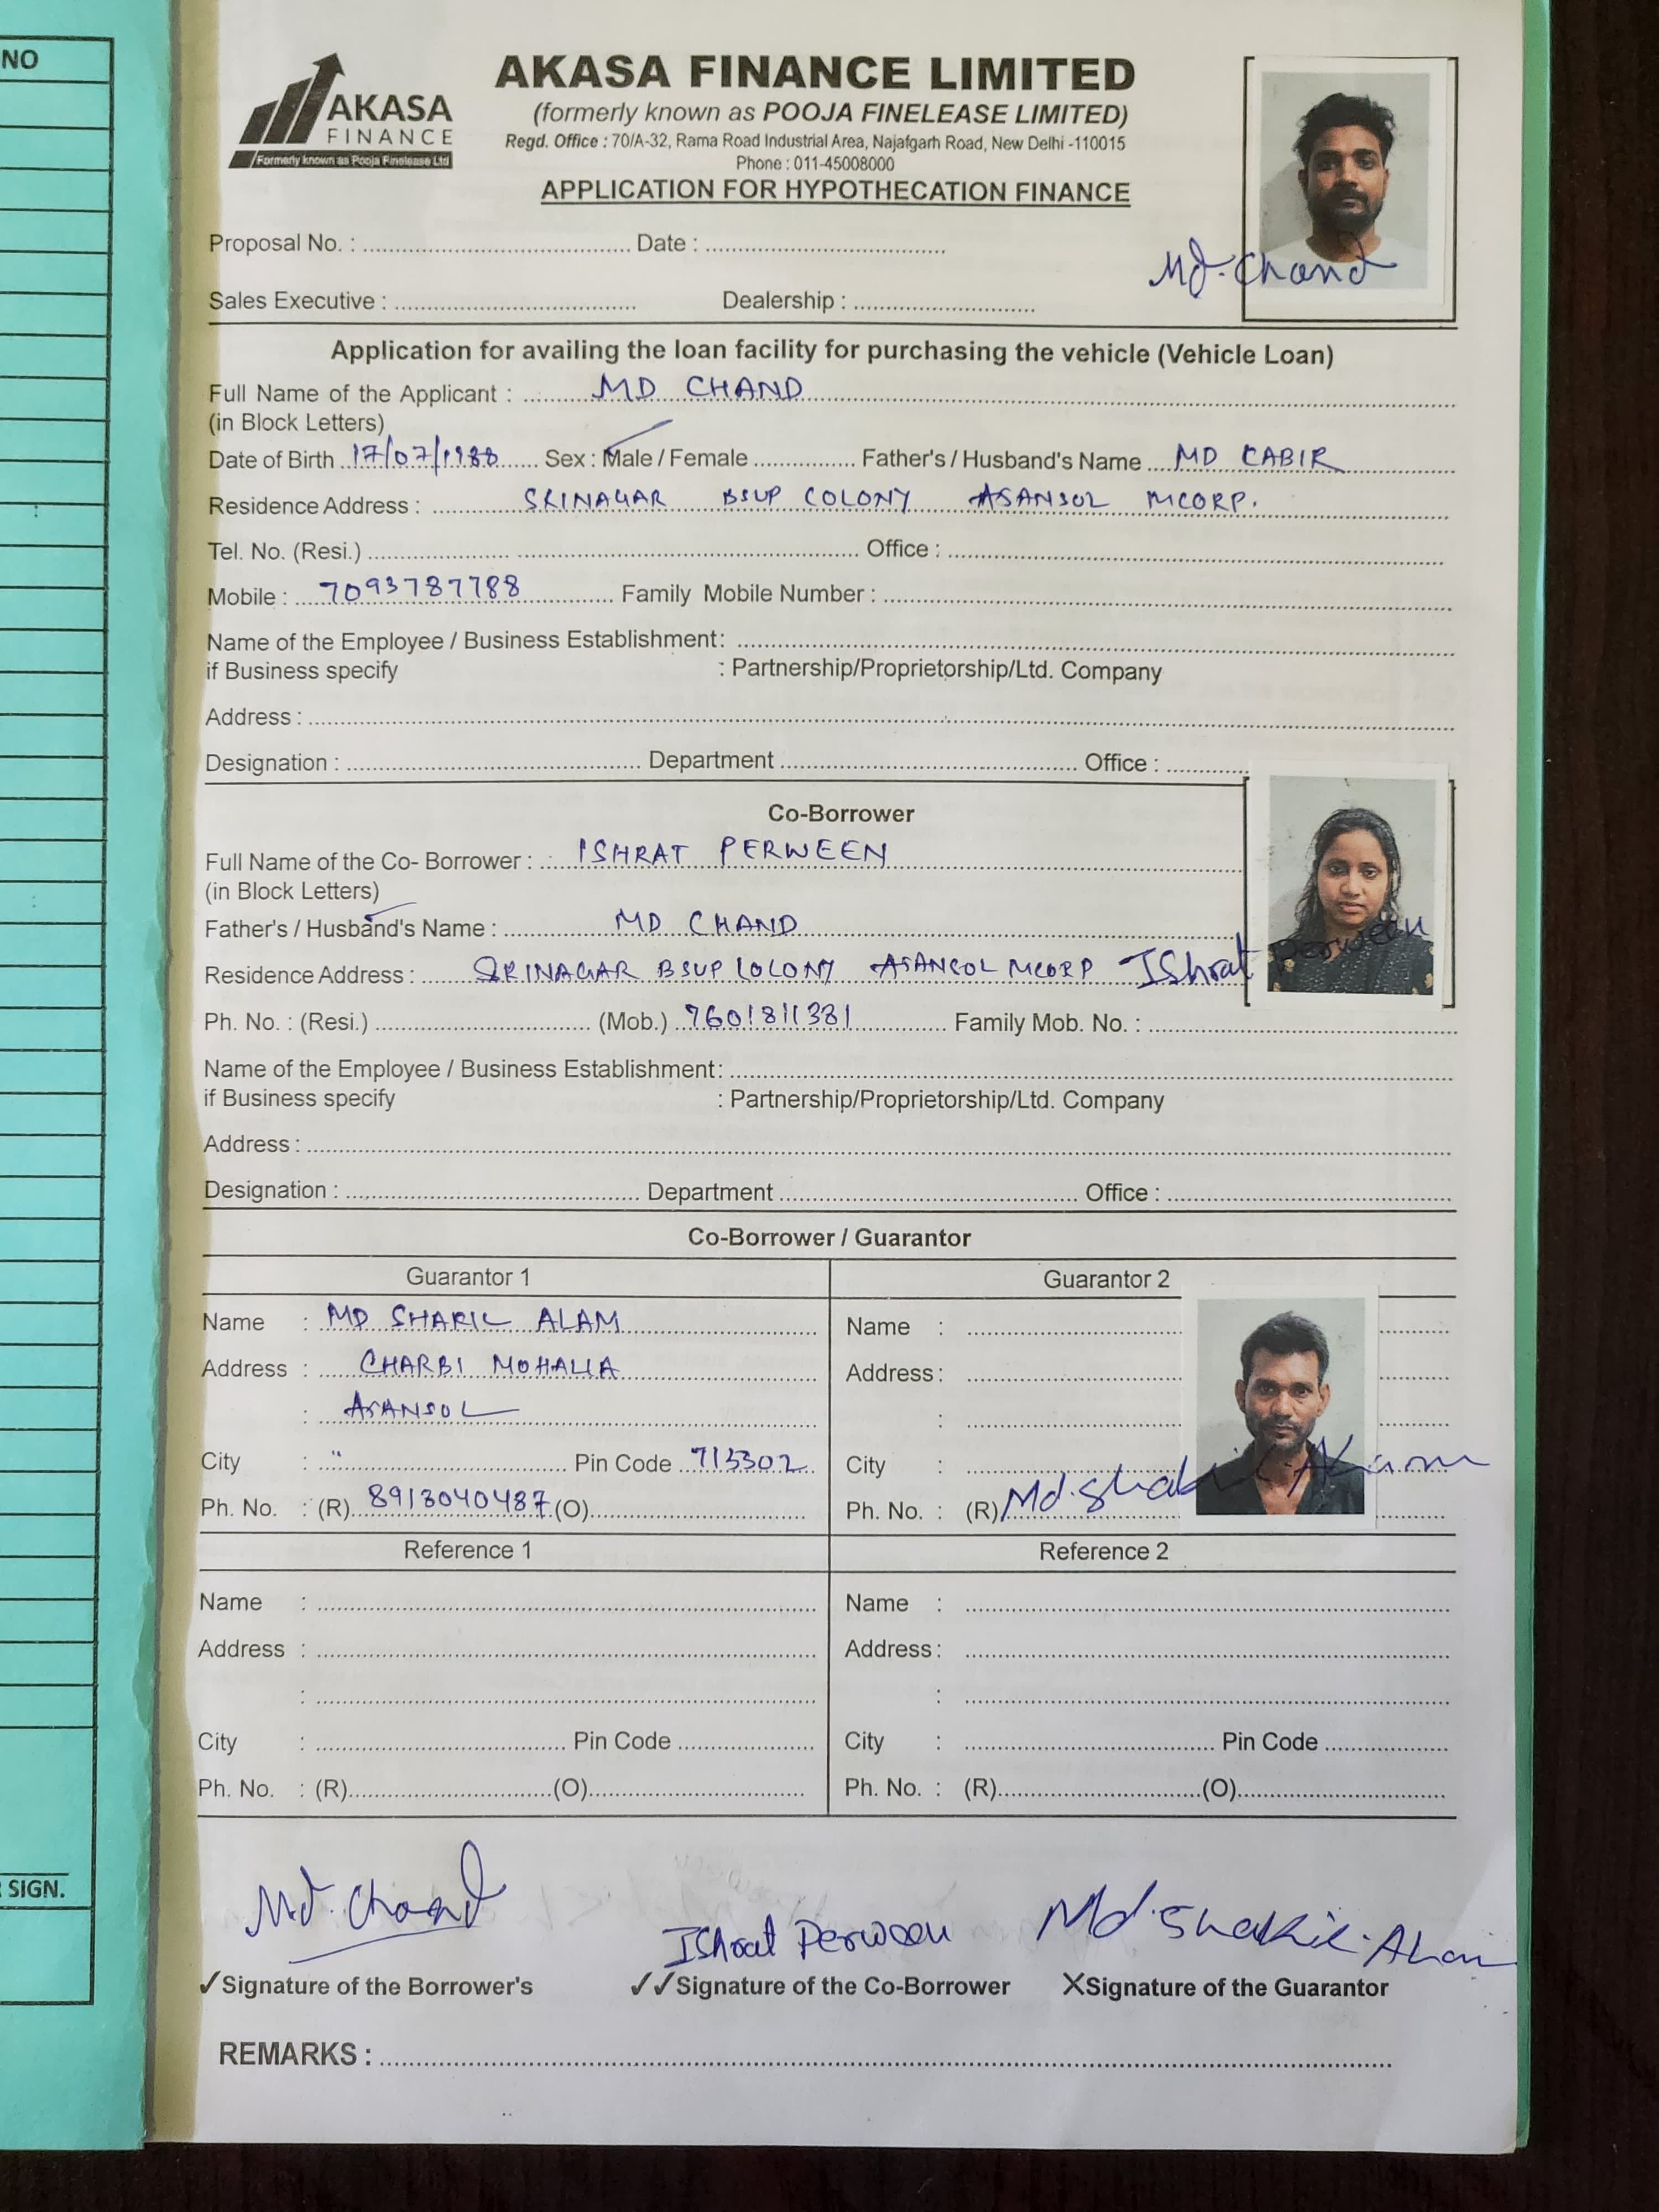 NO
AKASA
FINANCE
Formerly known as Pooja Finelease Ltd
AKASA FINANCE LIMITED
(formerly known as POOJA FINELEASE LIMITED)
Regd. Office : 70/A-32, Rama Road Industrial Area, Najafgarh Road, New Delhi -110015
Phone : 011-45008000
APPLICATION FOR HYPOTHECATION FINANCE
Proposal No. : Date :
Md. Chand
Sales Executive : Dealership :
Application for availing the loan facility for purchasing the vehicle (Vehicle Loan)
Full Name of the Applicant : MD CHAND
(in Block Letters)
Date of Birth 17/07/1988 Sex : Male / Female Father's / Husband's Name MD CABIR
Residence Address : SRINAGAR BSUP COLONY ASANSOL MCORP.
Tel. No. (Resi.) Office :
Mobile : 7093787788 Family Mobile Number :
Name of the Employee / Business Establishment:
if Business specify : Partnership/Proprietorship/Ltd. Company
Address :
Designation : Department Office :
Co-Borrower
Full Name of the Co- Borrower : ISHRAT PERWEEN
(in Block Letters)
Father's / Husband's Name : MD CHAND
Residence Address : SRINAGAR BSUP COLONY ASANSOL MCORP IShrat Perween
Ph. No. : (Resi.) (Mob.) 9601811381 Family Mob. No. :
Name of the Employee / Business Establishment:
if Business specify : Partnership/Proprietorship/Ltd. Company
Address :
Designation : Department Office :
Co-Borrower / Guarantor
Guarantor 1 Guarantor 2
Name : MD SHAKIL ALAM Name :
Address : CHARBI MOHALLA Address :
: ASANSOL :
City : " Pin Code 713302 City :
Ph. No. : (R) 8913040487 (O) Ph. No. : (R) Md. Shakil. Alam
Reference 1 Reference 2
Name : Name :
Address : Address :
: :
City : Pin Code City : Pin Code
Ph. No. : (R) (O) Ph. No. : (R) (O)
Md. Chand IShrat Perween Md. Shakil. Alam
SIGN.
✓Signature of the Borrower's ✓✓Signature of the Co-Borrower XSignature of the Guarantor
REMARKS :